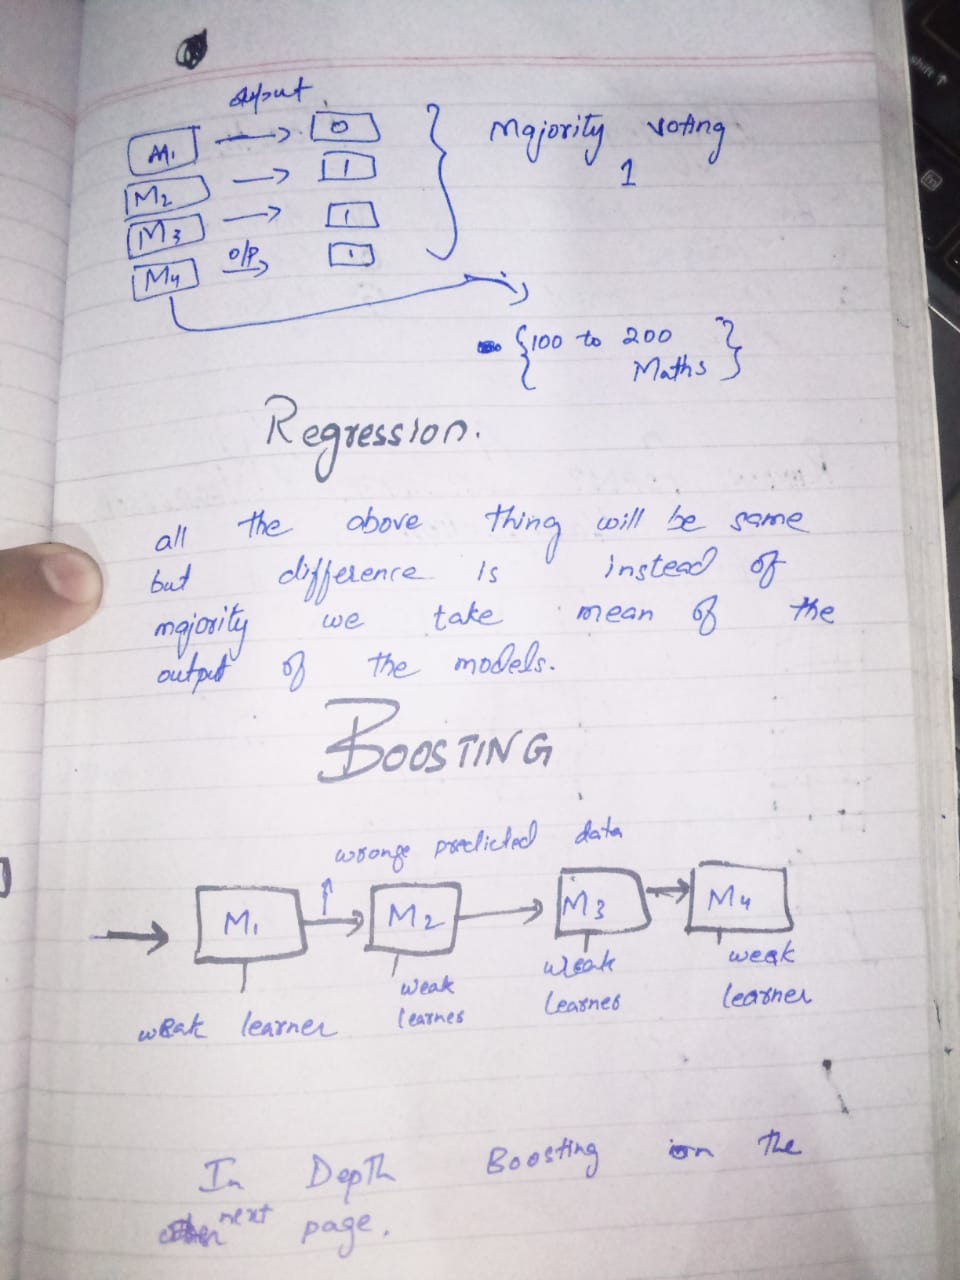 output
M1 → 0
M2 → 1
M3 → 1
M4 O/P → 1
Majority voting
1
{100 to 200
Maths}
Regression.
all the above thing will be same
but difference is instead of
majority we take mean of the
output of the models.
BOOSTING
wronge predicted data
M1 M2 M3 M4
weak learner
weak
learner
weak
learner
weak
learner
In Depth Boosting on the
next page.
shift ↑
fn